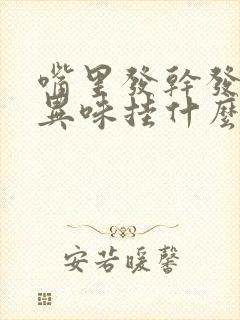 嘴里發幹發
異味挂什麽
安若暖馨